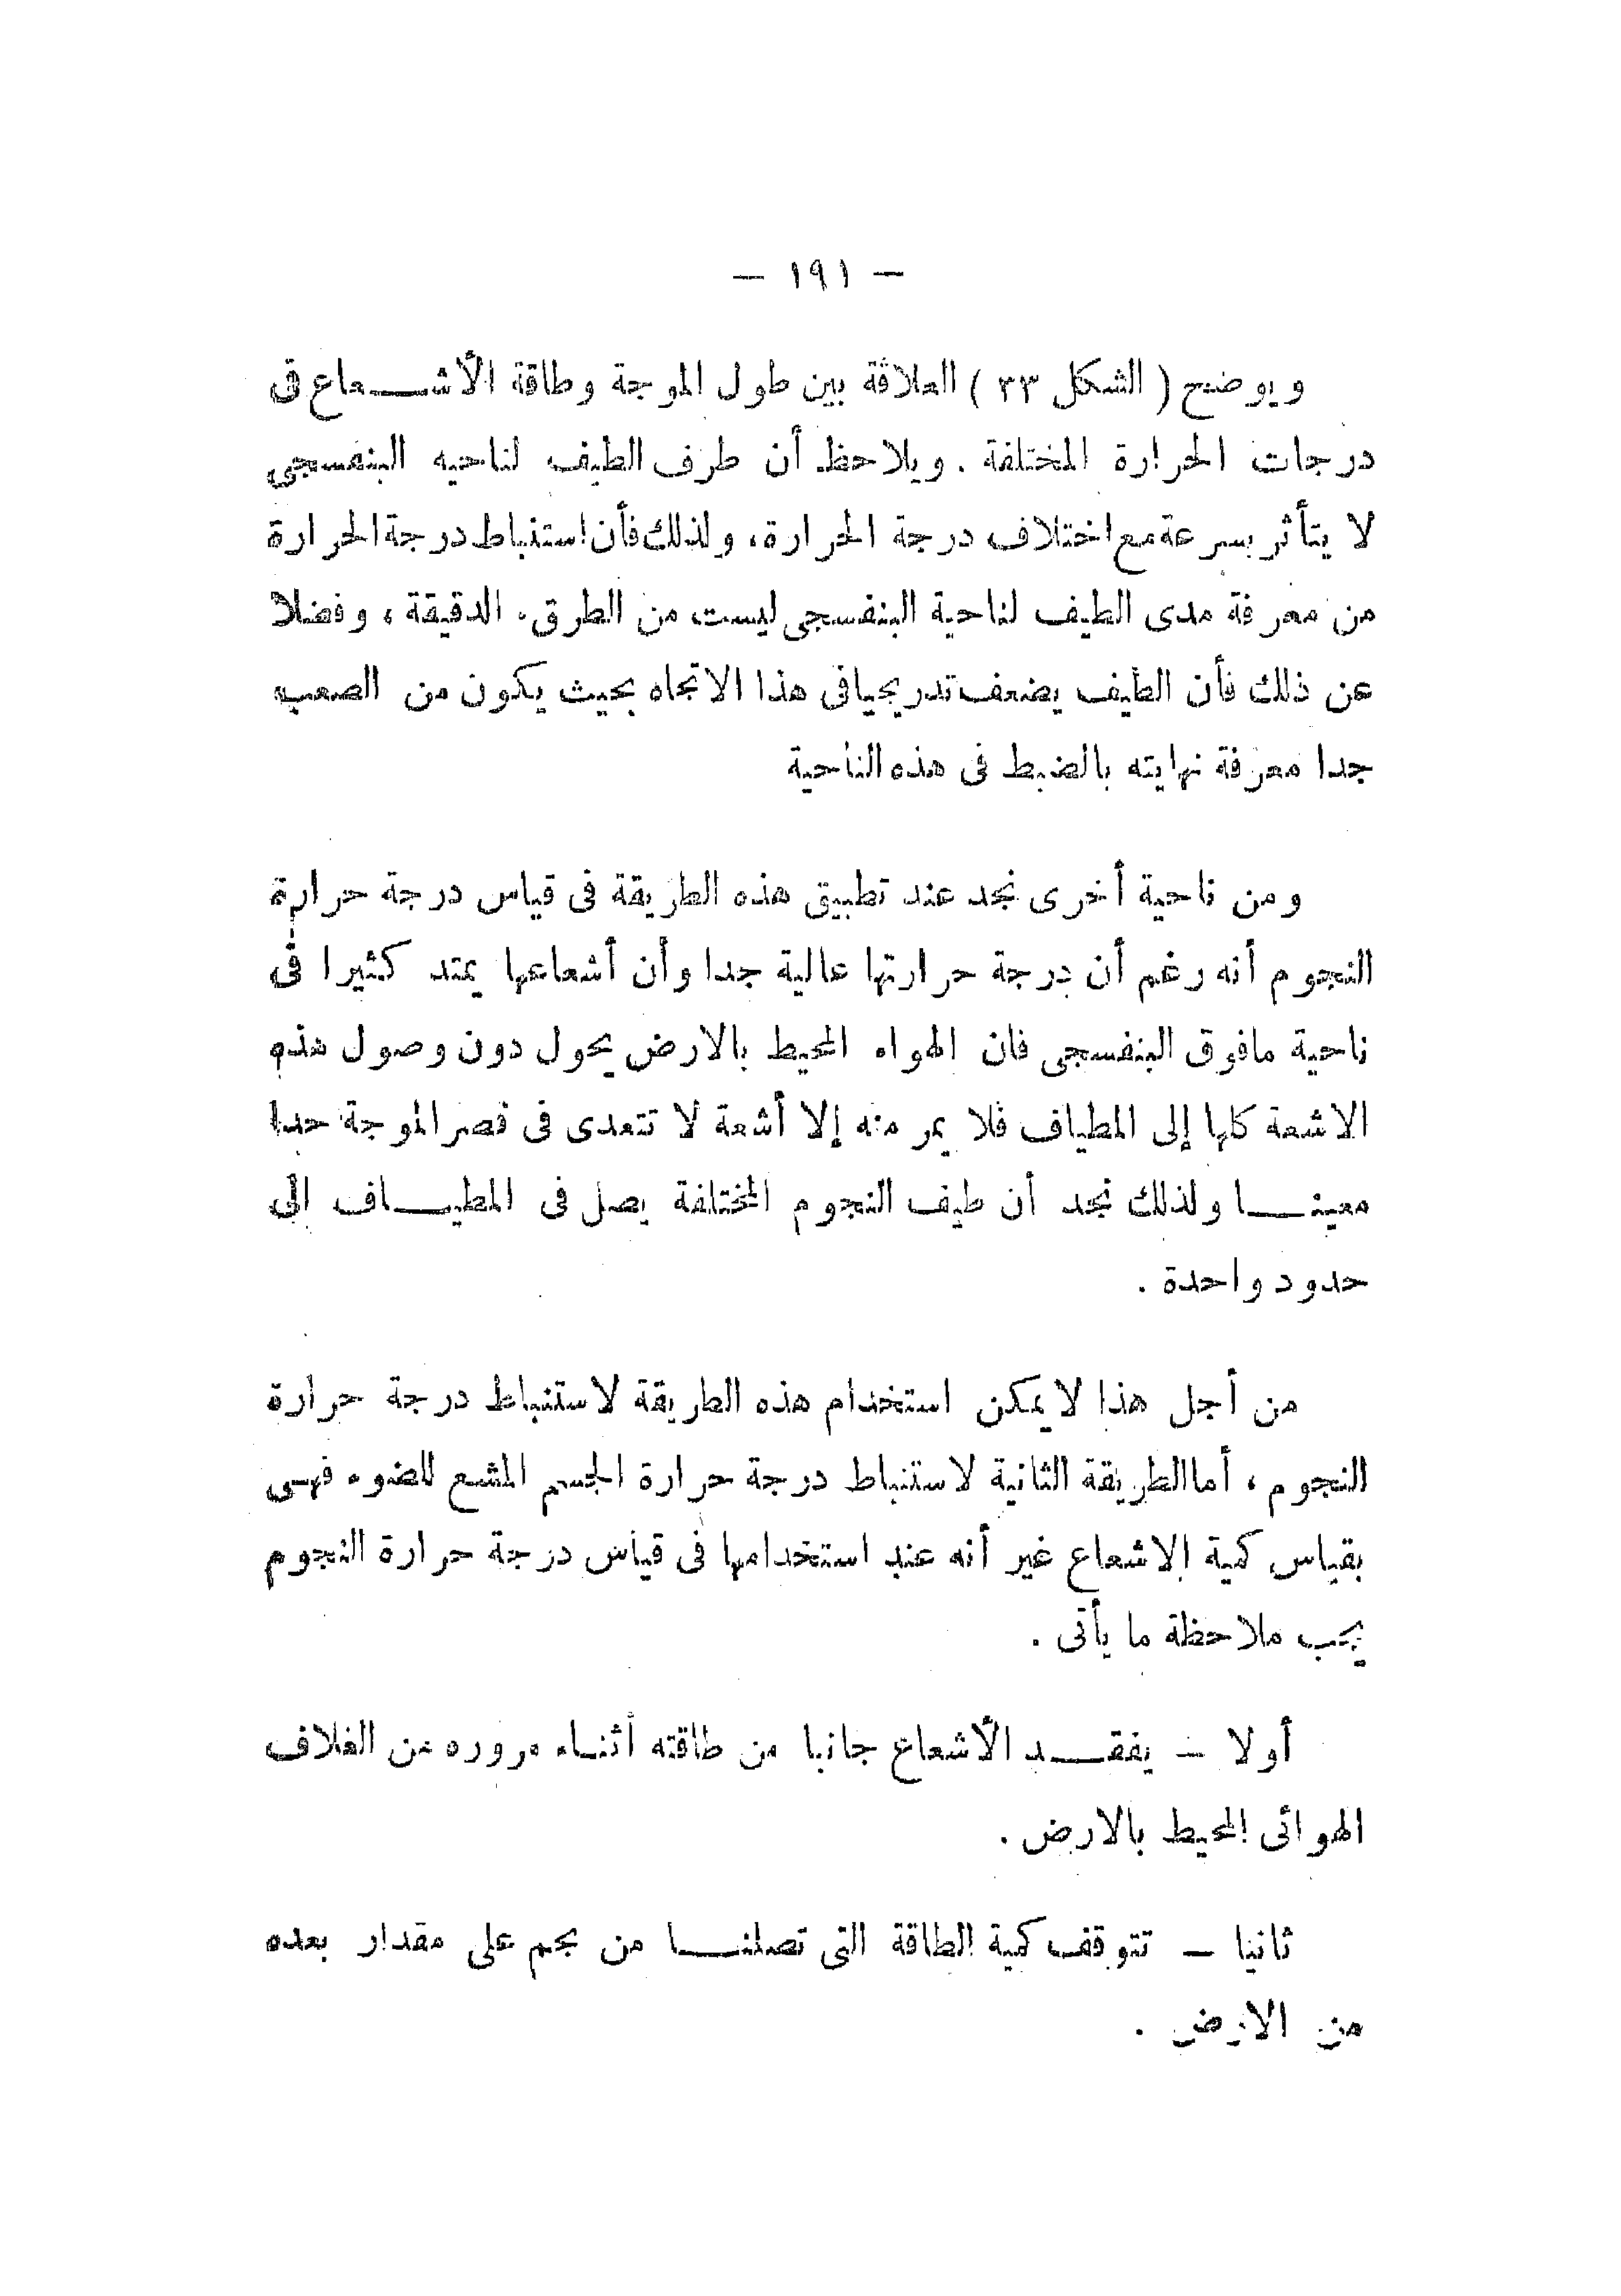 — ١٩١ —
ويوضح ( الشكل ٣٣ ) العلاقة بين طول الموجة وطاقة الأشعاع فى
درجات الحرارة المختلفة . ويلاحظ أن طرف الطيف لناحيه البنفسجى
لا يتأثر بسرعة مع اختلاف درجة الحرارة، ولذلك فأن استنباط درجة الحرارة
من معرفة مدى الطيف لناحية البنفسجى ليست من الطرق. الدقيقة ، وفضلا
عن ذلك فأن الطيف يضعف تدريجيا فى هذا الاتجاه بحيث يكون من الصعب
جدا معرفة نهايته بالضبط فى هذه الناحية
ومن ناحية أخرى نجد عند تطبيق هذه الطريقة فى قياس درجة حرارة
النجوم أنه رغم أن درجة حرارتها عالية جدا وأن أشعاعها يمتد كثيرا فى
ناحية مافوق البنفسجى فان الهواء المحيط بالارض يحول دون وصول هذه
الاشعة كلها إلى المطياف فلا يمر منه إلا أشعة لا تتعدى فى قصر الموجة حدا
معينا ولذلك نجد أن طيف النجوم المختلفة يصل فى المطياف الى
حدود واحدة .
من أجل هذا لا يمكن استخدام هذه الطريقة لاستنباط درجة حرارة
النجوم ، أما الطريقة الثانية لاستنباط درجة حرارة الجسم المشع للضوء فهى
بقياس كمية الاشعاع غير أنه عند استخدامها فى قياس درجة حرارة النجوم
يجب ملاحظة ما يأتى .
أولا — يفقد الأشعاع جانبا من طاقته أثناء مروره من الغلاف
الهوائى المحيط بالارض .
ثانيا — تتوقف كمية الطاقة التى تصلنا من نجم على مقدار بعده
من الارض .